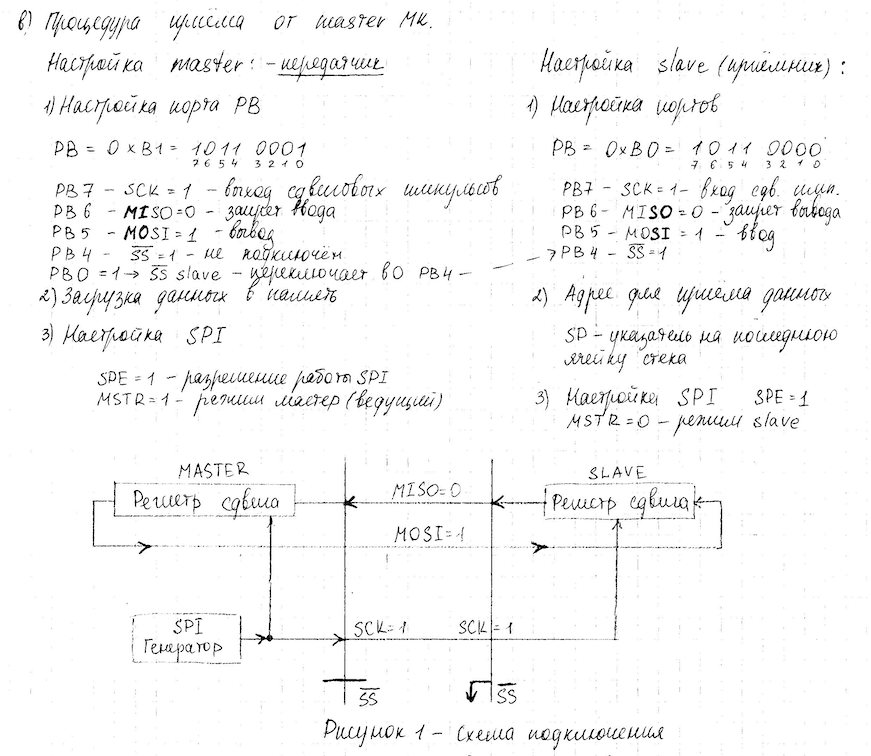 в) Процедура приёма от master МК.
Настройка master: - передатчик
1) Настройка порта PB
PB = 0xB1 = 1011 0001
7 6 5 4 3 2 1 0
PB7 - SCK = 1 - выход сдвиговых импульсов
PB6 - MISO = 0 - запрет ввода
PB5 - MOSI = 1 - вывод
PB4 - SS̅ = 1 - не подключён
PB0 = 1 → SS̅ slave - переключает в 0 PB4 -
2) Загрузка данных в память
3) Настройка SPI
SPE = 1 - разрешение работы SPI
MSTR = 1 - режим мастер (ведущий)
Настройка slave (приёмник):
1) Настройка портов
PB = 0xB0 = 1011 0000
7 6 5 4 3 2 1 0
PB7 - SCK = 1 - вход сдв. имп.
PB6 - MISO = 0 - запрет вывода
PB5 - MOSI = 1 - ввод
→ PB4 - SS̅ = 1
2) Адрес для приёма данных
SP - указатель на последнюю
ячейку стека
3) Настройка SPI SPE = 1
MSTR = 0 - режим slave
MASTER
Регистр сдвига
MISO=0
SLAVE
Регистр сдвига
MOSI=1
SPI
Генератор
SCK=1 SCK=1
SS̅ SS̅
Рисунок 1 - Схема подключения